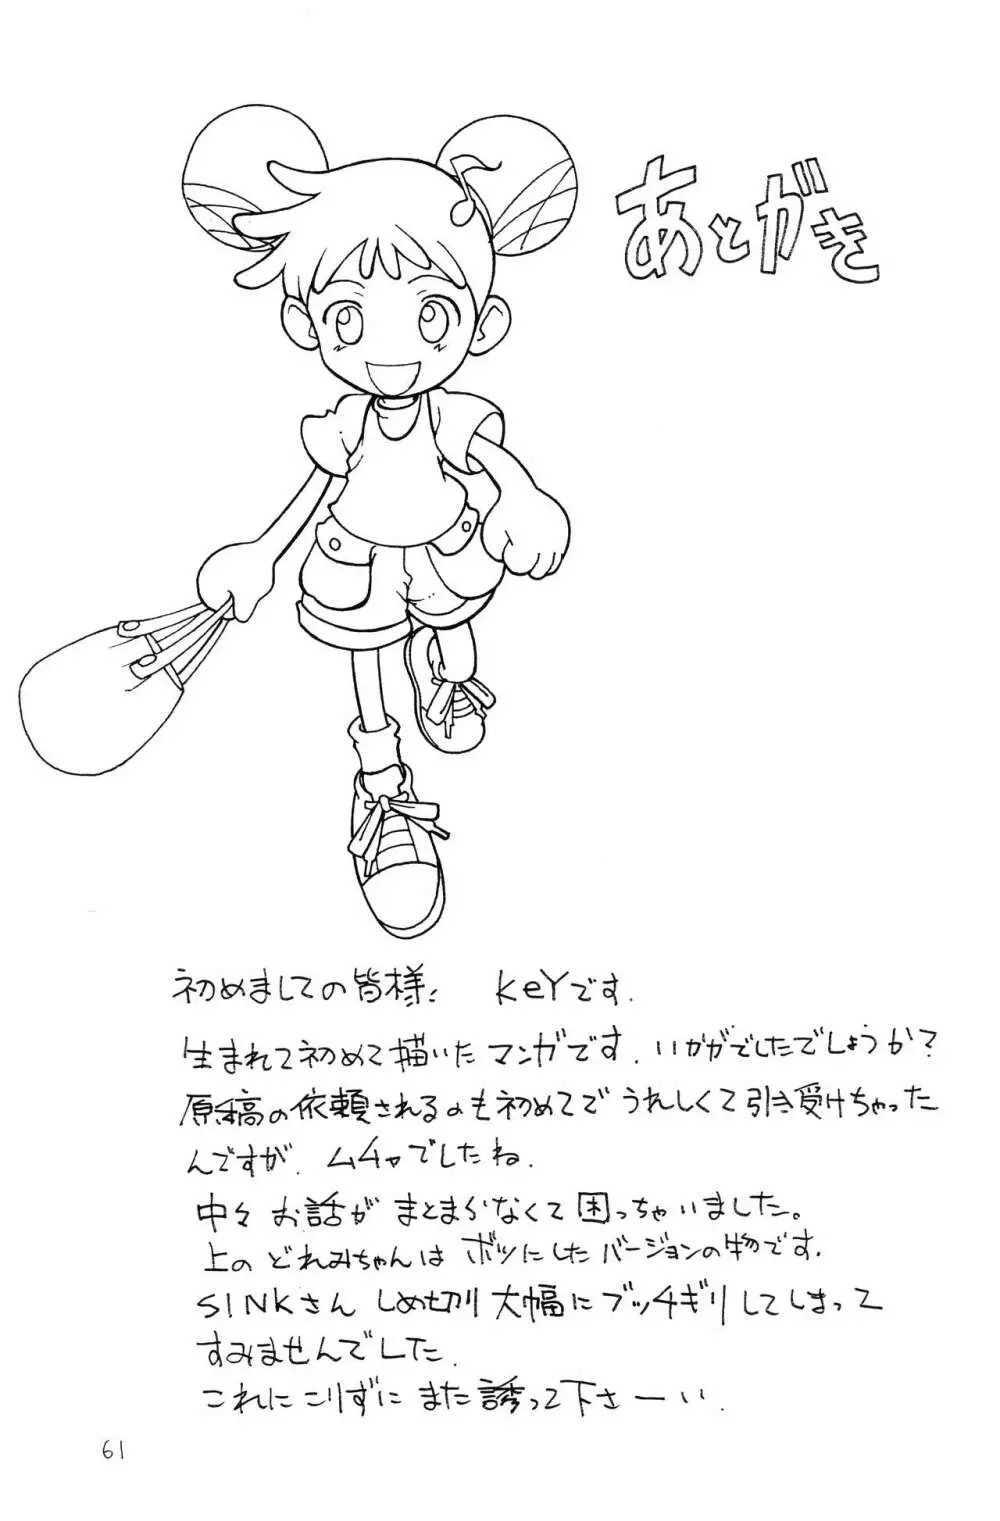 あとがき
初めましての皆様、 keYです.
生まれて初めて描いたマンガです. いかがでしたでしょうか?
原稿の依頼されるのも初めてで うれしくて引き受けちゃった
んですが. ムチャでしたね.
中々 お話が まとまらなくて 困っちゃいました。
上の どれみちゃんは ボツにしたバージョンの物です.
SINKさん しめ切り 大幅に ブッチギリしてしまって
すみませんでした.
これに こりずに また 誘って下さーい.
61